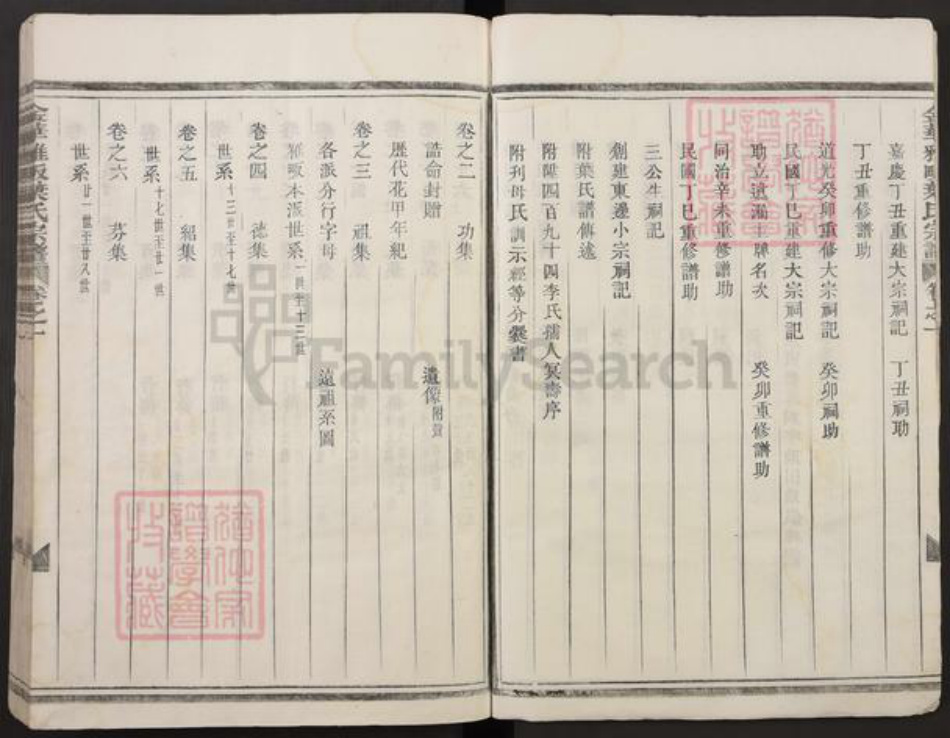 嘉慶丁丑重建大宗祠記 丁丑祠助
丁丑重修譜助
道光癸卯重修大宗祠記 癸卯祠助
民國丁巳重建大宗祠記
助立遺漏主牌名次 癸卯重修譜助
同治辛未重修譜助
民國丁巳重修譜助
三公生祠記
創建東邊小宗祠記
附葉氏譜傳述
附陞四百九十四李氏孺人冥壽序
附刊母氏訓示經等分爨書
卷之二 功集
誥命封贈 遺像附贊
歷代花甲年紀
卷之三 祖集
各派分行字母 遠祖系圖
雅畈本派世系一世至十三世
卷之四 德集
世系十三世至十七世
卷之五 紹集
世系十七世至廿一世
卷之六 芬集
世系廿一世至廿八世
金華雅畈葉氏宗譜 卷之一
FamilySearch
譜學會
收藏